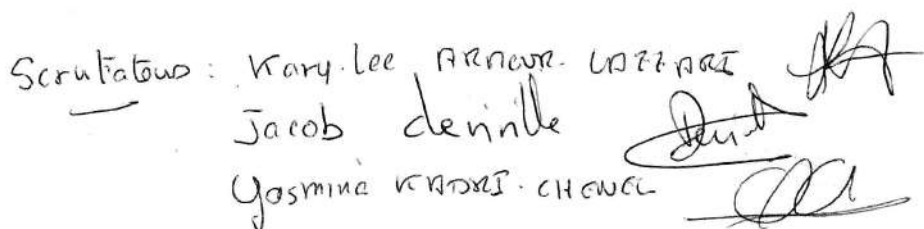 Scrutateurs : Kary.Lee ARNOUR. LAZZARI
Jacob devinlle
Yasmina KADRI. CHENEL